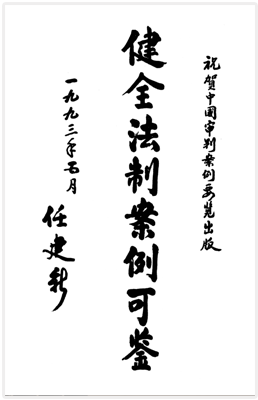 祝贺中国审判案例要览出版
健全法制案例可鉴
一九九三年五月
任建新